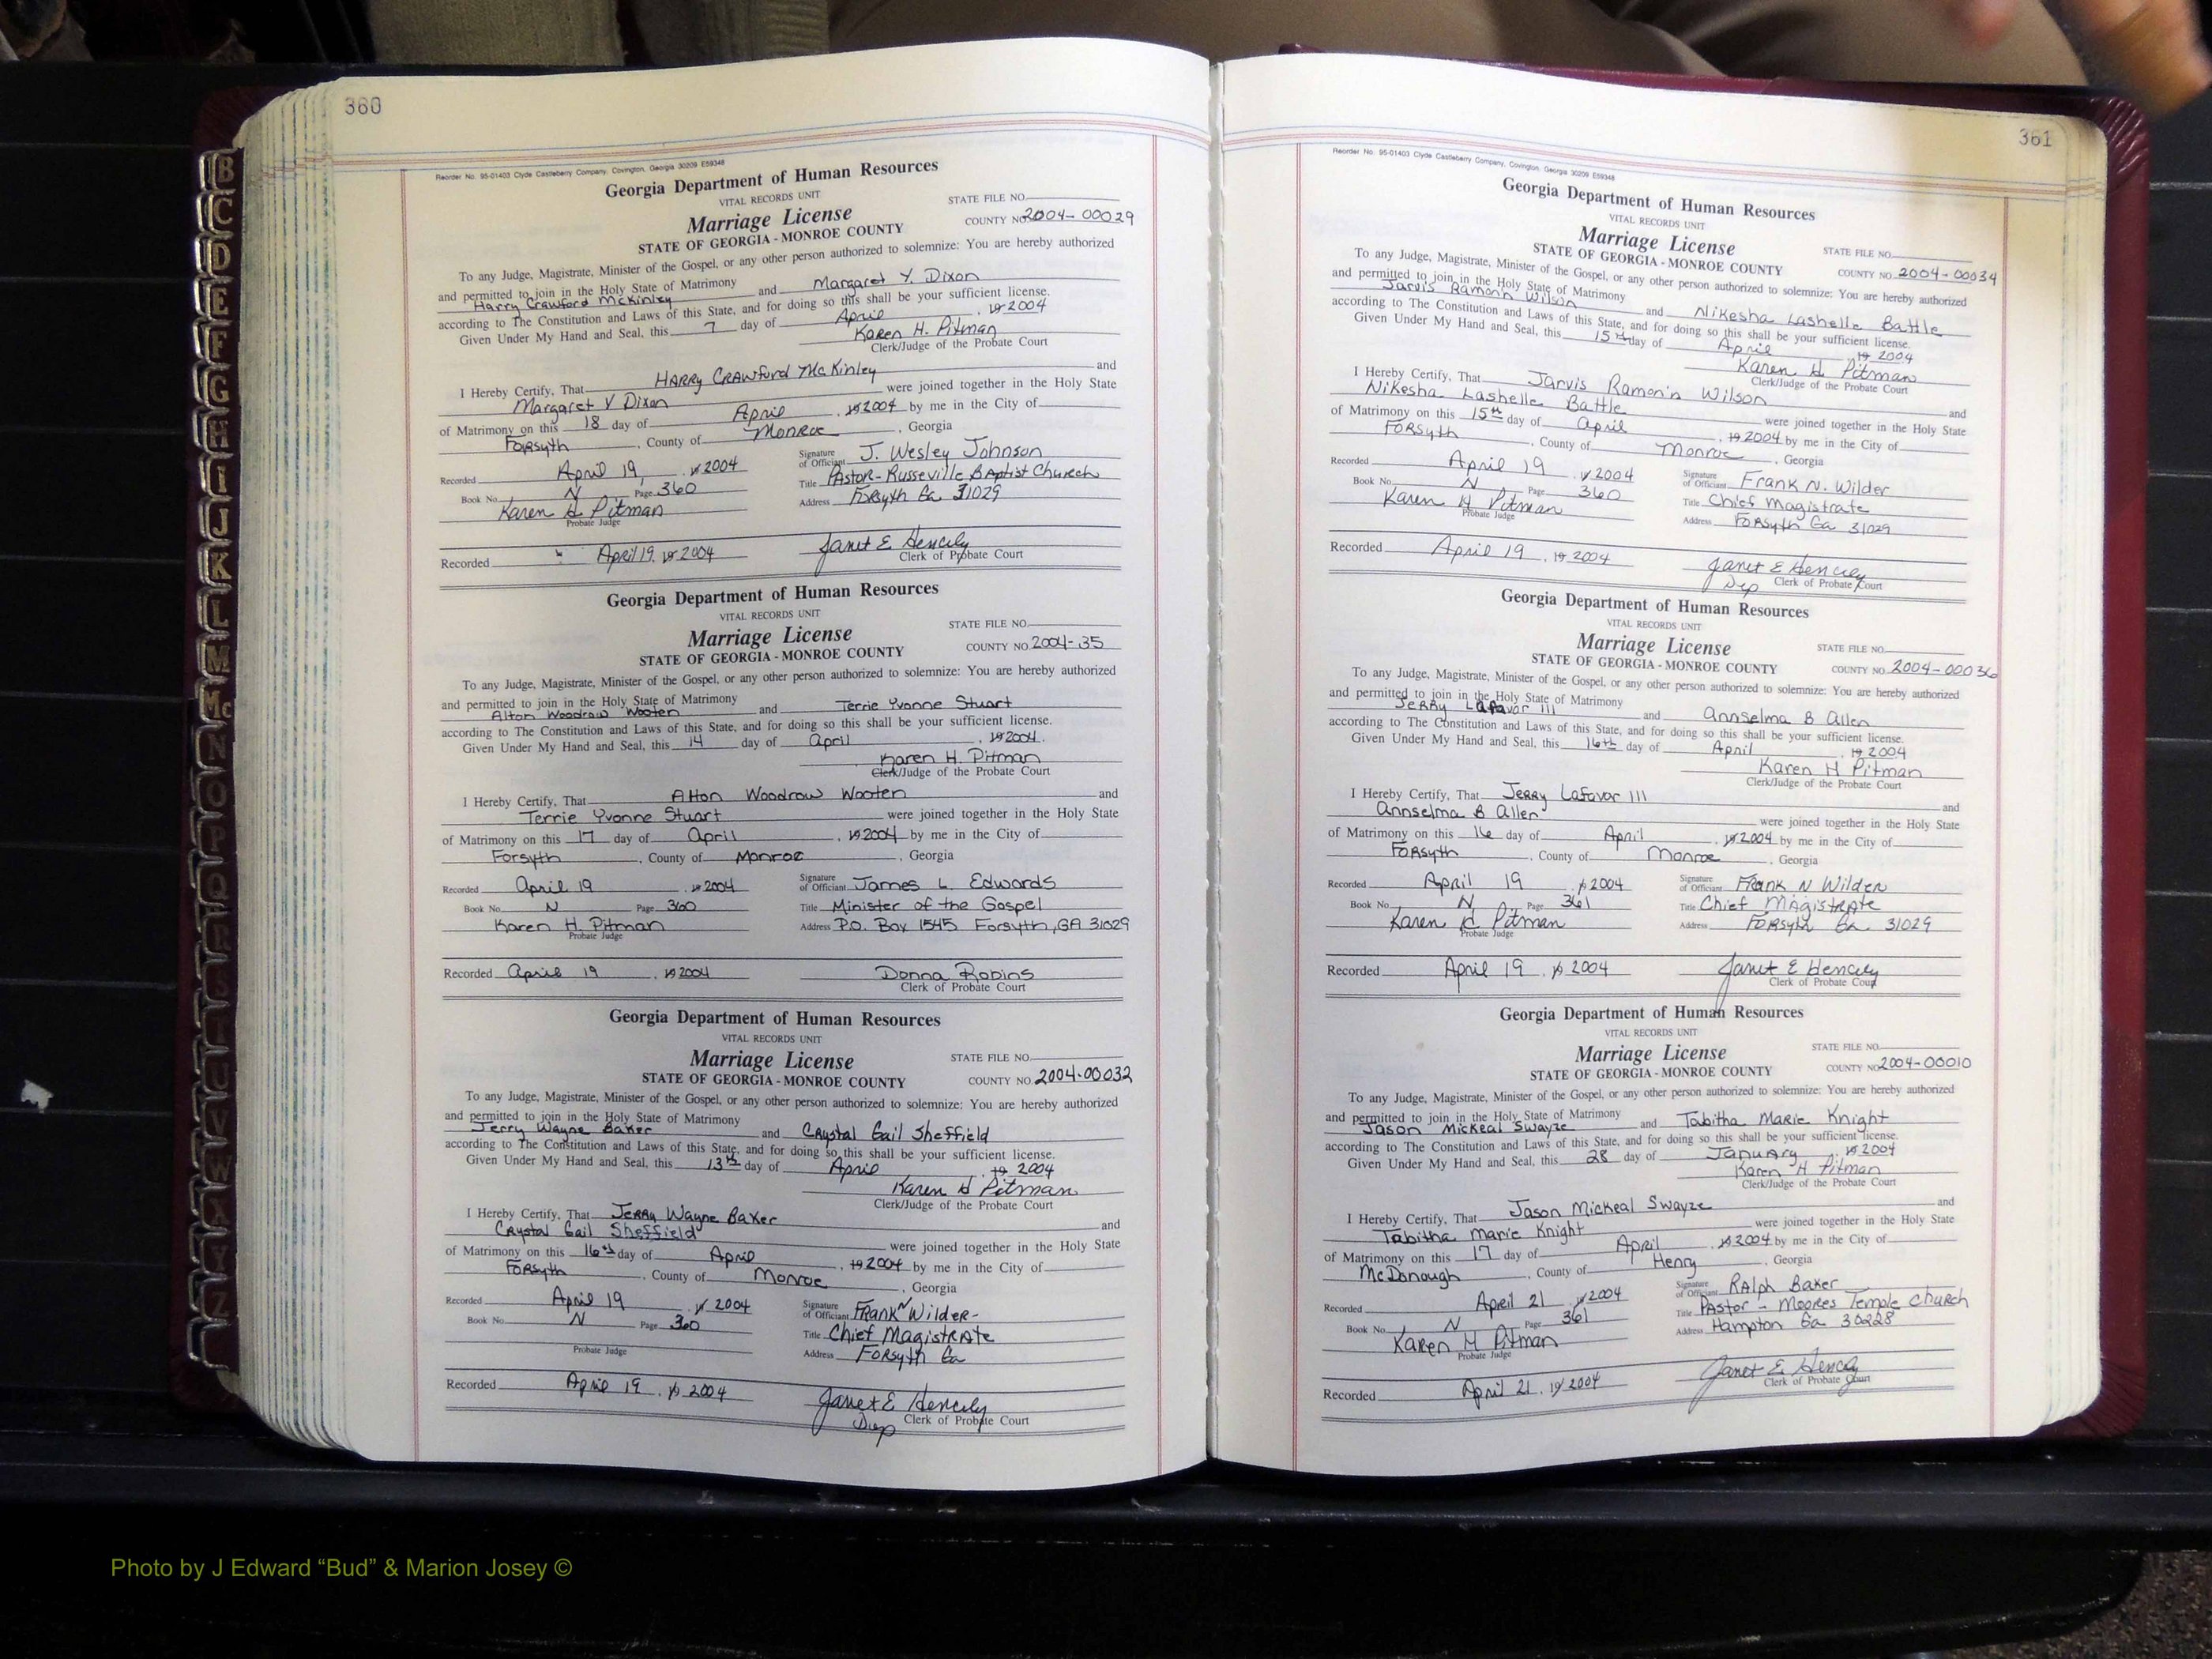 360
Reorder No. 95-01403 Clyde Castleberry Company, Covington, Georgia 30209 E59348
Georgia Department of Human Resources
VITAL RECORDS UNIT
Marriage License
STATE OF GEORGIA - MONROE COUNTY
STATE FILE NO.
COUNTY NO. 2004-00029
To any Judge, Magistrate, Minister of the Gospel, or any other person authorized to solemnize: You are hereby authorized
and permitted to join in the Holy State of Matrimony
Harry Crawford McKinley and Margaret Y. Dixon
according to The Constitution and Laws of this State, and for doing so this shall be your sufficient license.
Given Under My Hand and Seal, this 7 day of April , 19 2004
Karen H. Pitman
Clerk/Judge of the Probate Court
I Hereby Certify, That HARRY CRAWFord McKinley and
Margaret Y Dixon were joined together in the Holy State
of Matrimony on this 18 day of April , 19 2004 by me in the City of
Forsyth , County of Monroe , Georgia
Recorded April 19, 19 2004
Book No. N Page 360
Karen H Pitman
Probate Judge
Signature of Officiant J. Wesley Johnson
Title PAstor - Russeville BAptist Church
Address Forsyth Ga 31029
Recorded April 19, 19 2004
Janet E Hencely
Clerk of Probate Court
Georgia Department of Human Resources
VITAL RECORDS UNIT
Marriage License
STATE OF GEORGIA - MONROE COUNTY
STATE FILE NO.
COUNTY NO. 2004-35
To any Judge, Magistrate, Minister of the Gospel, or any other person authorized to solemnize: You are hereby authorized
and permitted to join in the Holy State of Matrimony
Alton Woodrow Wooten and Terrie Yvonne Stuart
according to The Constitution and Laws of this State, and for doing so this shall be your sufficient license.
Given Under My Hand and Seal, this 14 day of april , 19 2004.
Karen H. Pitman
Clerk/Judge of the Probate Court
I Hereby Certify, That Alton Woodrow Wooten and
Terrie Yvonne Stuart were joined together in the Holy State
of Matrimony on this 17 day of April , 19 2004 by me in the City of
Forsyth , County of Monroe , Georgia
Recorded April 19 , 19 2004
Book No. N Page 360
Karen H. Pitman
Probate Judge
Signature of Officiant James L. Edwards
Title Minister of the Gospel
Address P.O. Box 1545 Forsyth, GA 31029
Recorded april 19 , 19 2004
Donna Robins
Clerk of Probate Court
Georgia Department of Human Resources
VITAL RECORDS UNIT
Marriage License
STATE OF GEORGIA - MONROE COUNTY
STATE FILE NO.
COUNTY NO. 2004-00032
To any Judge, Magistrate, Minister of the Gospel, or any other person authorized to solemnize: You are hereby authorized
and permitted to join in the Holy State of Matrimony
Jerry Wayne Baker and Crystal Gail Sheffield
according to The Constitution and Laws of this State, and for doing so this shall be your sufficient license.
Given Under My Hand and Seal, this 13th day of April , 19 2004
Karen H Pitman
Clerk/Judge of the Probate Court
I Hereby Certify, That Jerry Wayne Baker and
Crystal Gail Sheffield were joined together in the Holy State
of Matrimony on this 16th day of April , 19 2004 by me in the City of
Forsyth , County of Monroe , Georgia
Recorded April 19 , 19 2004
Book No. N Page 360
Probate Judge
Signature of Officiant FRANK N Wilder-
Title Chief MagistRAte
Address FoRsyth Ga
Recorded April 19 , 19 2004
Janet E Hencely
Dep Clerk of Probate Court
361
Reorder No. 95-01403 Clyde Castleberry Company, Covington, Georgia 30209 E59348
Georgia Department of Human Resources
VITAL RECORDS UNIT
Marriage License
STATE OF GEORGIA - MONROE COUNTY
STATE FILE NO.
COUNTY NO. 2004-00034
To any Judge, Magistrate, Minister of the Gospel, or any other person authorized to solemnize: You are hereby authorized
and permitted to join in the Holy State of Matrimony
Jarvis Ramon'n Wilson and Nikesha Lashelle Battle
according to The Constitution and Laws of this State, and for doing so this shall be your sufficient license.
Given Under My Hand and Seal, this 15th day of April , 19 2004
Karen H Pitman
Clerk/Judge of the Probate Court
I Hereby Certify, That Jarvis Ramon'n Wilson and
Nikesha Lashelle Battle were joined together in the Holy State
of Matrimony on this 15th day of april , 19 2004 by me in the City of
FoRsyth , County of Monroe , Georgia
Recorded April 19 , 19 2004
Book No. N Page 360
Karen H Pitman
Probate Judge
Signature of Officiant Frank N. Wilder
Title Chief Magistrate
Address FoRsyth Ga 31029
Recorded April 19 , 19 2004
Janet E Hencely
Dep Clerk of Probate Court
Georgia Department of Human Resources
VITAL RECORDS UNIT
Marriage License
STATE OF GEORGIA - MONROE COUNTY
STATE FILE NO.
COUNTY NO. 2004-00036
To any Judge, Magistrate, Minister of the Gospel, or any other person authorized to solemnize: You are hereby authorized
and permitted to join in the Holy State of Matrimony
Jerry Lafavor III and Annselma B Allen
according to The Constitution and Laws of this State, and for doing so this shall be your sufficient license.
Given Under My Hand and Seal, this 16th day of April , 19 2004
Karen H Pitman
Clerk/Judge of the Probate Court
I Hereby Certify, That Jerry Lafavor III and
Annselma B Allen were joined together in the Holy State
of Matrimony on this 16 day of April , 19 2004 by me in the City of
FoRsyth , County of Monroe , Georgia
Recorded April 19 , 19 2004
Book No. N Page 361
Karen H Pitman
Probate Judge
Signature of Officiant Frank N Wilder
Title Chief MAgistRAte
Address FoRsyth Ga 31029
Recorded April 19 , 19 2004
Janet E Hencely
Clerk of Probate Court
Georgia Department of Human Resources
VITAL RECORDS UNIT
Marriage License
STATE OF GEORGIA - MONROE COUNTY
STATE FILE NO.
COUNTY NO. 2004-00010
To any Judge, Magistrate, Minister of the Gospel, or any other person authorized to solemnize: You are hereby authorized
and permitted to join in the Holy State of Matrimony
Jason Mickeal Swayze and Tabitha Marie Knight
according to The Constitution and Laws of this State, and for doing so this shall be your sufficient license.
Given Under My Hand and Seal, this 28 day of January , 19 2004
Karen H Pitman
Clerk/Judge of the Probate Court
I Hereby Certify, That Jason Mickeal Swayze and
Tabitha Marie Knight were joined together in the Holy State
of Matrimony on this 17 day of April , 19 2004 by me in the City of
McDonough , County of Henry , Georgia
Recorded April 21 , 19 2004
Book No. N Page 361
Karen H Pitman
Probate Judge
Signature of Officiant RAlph Baker
Title PAstor - Moores Temple Church
Address Hampton Ga 30228
Recorded April 21, 19 2004
Janet E Hencely
Clerk of Probate Court
B
C
D
E
F
G
H
I
J
K
L
M
Mc
N
O
P
Q
R
S
T
U
V
W
X
Y
Z
Photo by J Edward “Bud” & Marion Josey ©